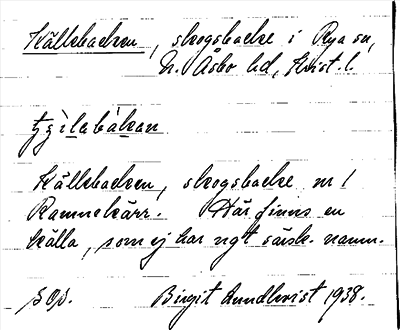 Källebacken, skogsbacke i Rya sn,
N. Åsbo hd, Krist. l.
Källebacken, skogsbacke nr 1
Ramnekärr. Här finns en
källa, som ej har ngt särsk. namn.
Birgit Lundkvist 1938.